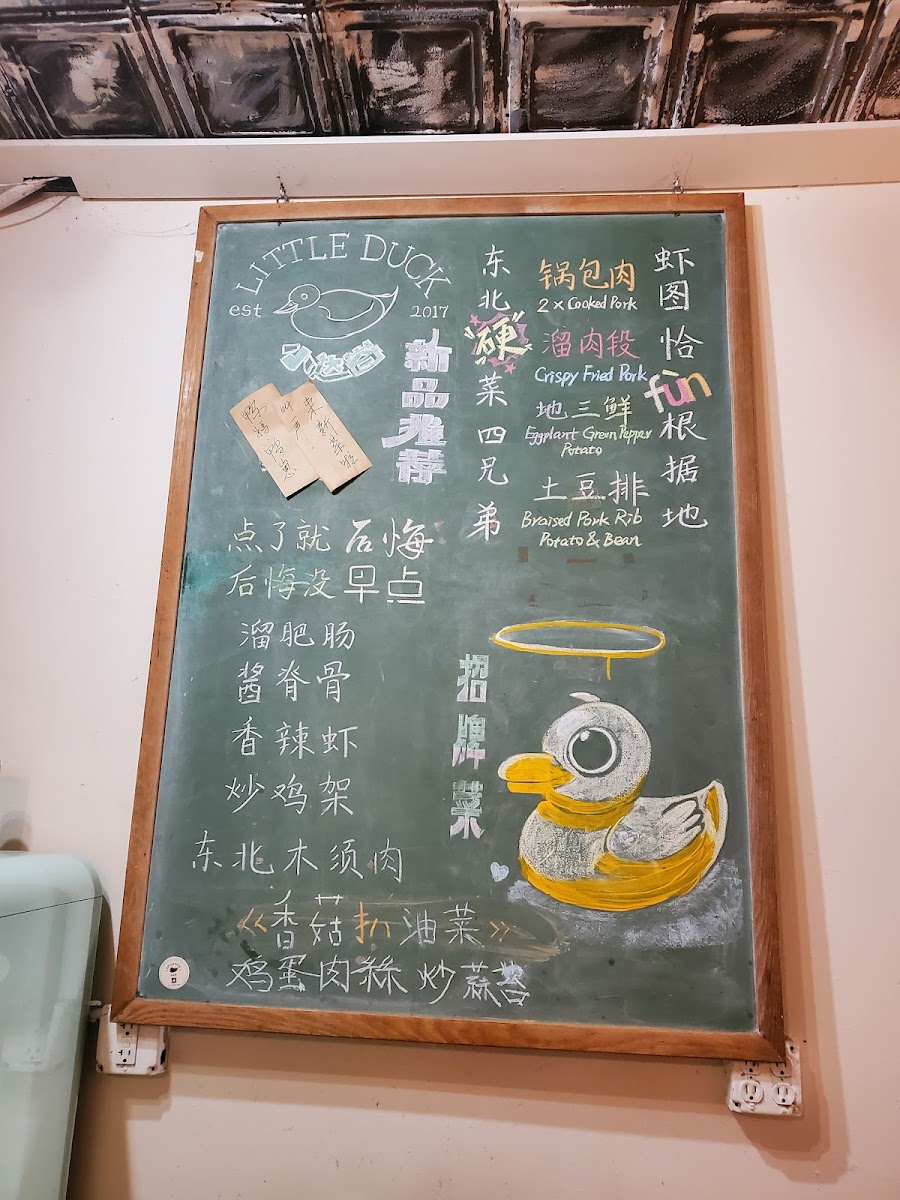 LITTLE DUCK
est 2017
新品推荐
点了就后悔
后悔没早点
溜肥肠
酱脊骨
香辣虾
炒鸡架
东北木须肉
《香菇扒油菜》
鸡蛋肉絲炒蒜苔
东北"硬"菜四兄弟
锅包肉
2 x Cooked Pork
溜肉段
Crispy Fried Pork
地三鲜
Eggplant Green Pepper
Potato
土豆排
Braised Pork Rib
Potato & Bean
虾图恰fùn根据地
招牌菜